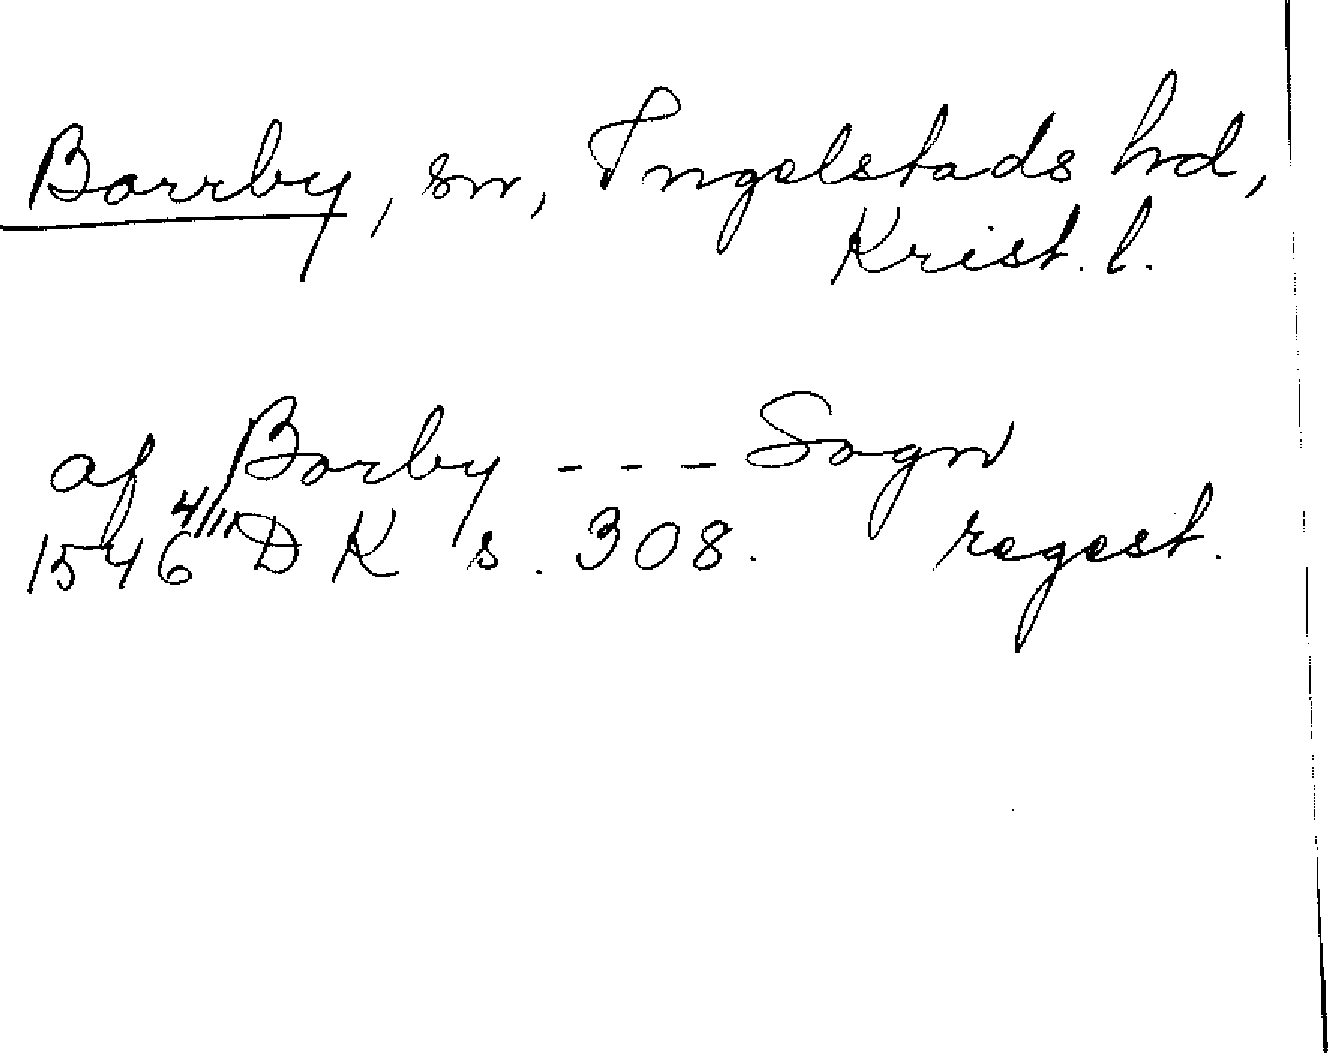 Borrby, sn, Ingelstads hd,
Krist. l.
af Borby - - - Sogn
1546 4/11 DK s. 308. regest.